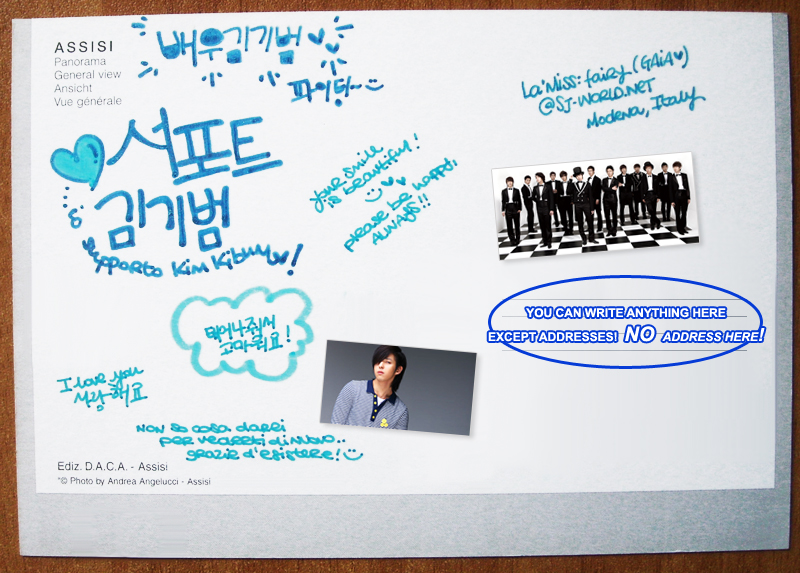 ASSISI
Panorama
General view
Ansicht
Vue générale
배우김기범
파이팅~
서포트
김기범
supporto Kim Kibum!
your smile
is beautiful!
please be happy,
ALWAYS!!
La'Miss:fairy (GAiA♥)
@SJ-WORLD.NET
Modena, Italy
YOU CAN WRITE ANYTHING HERE
EXCEPT ADDRESSES! NO ADDRESS HERE!
태어나줘서
고마워요!
I love you
사랑해요
Non so cosa darei
per vederti di nuovo..
grazie d'esistere!
Ediz. D.A.C.A. - Assisi
"© Photo by Andrea Angelucci - Assisi